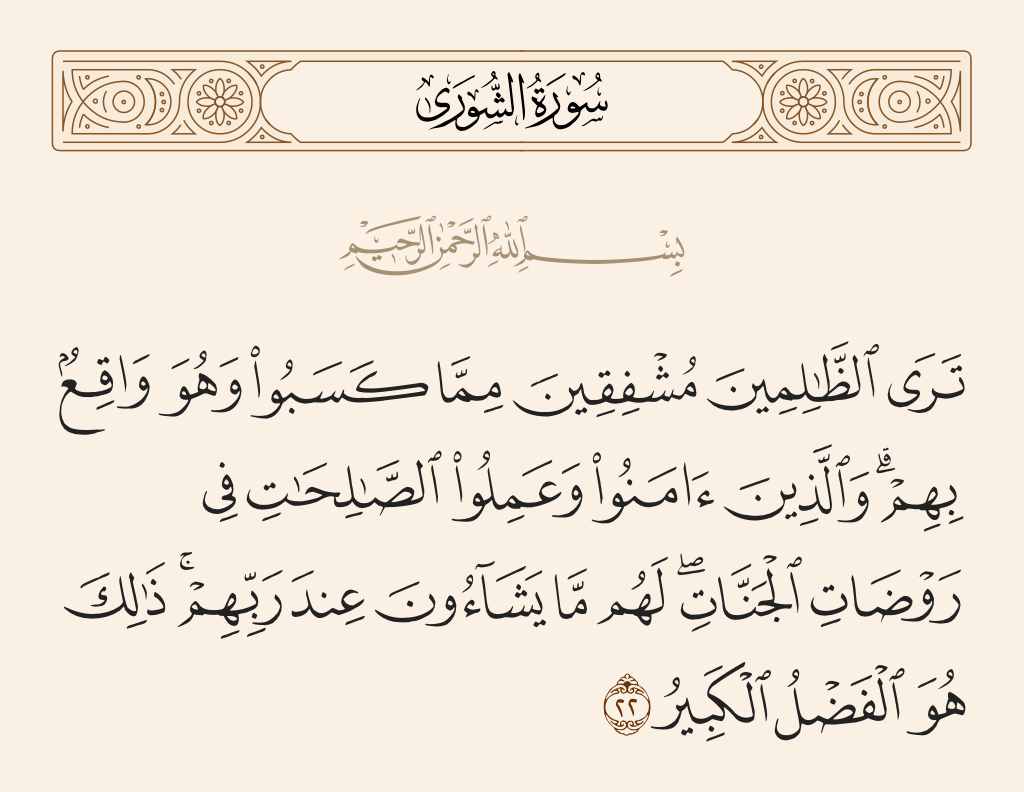 سُورَةُ الشُّورَىٰ
بِسْمِ ٱللَّهِ ٱلرَّحْمَٰنِ ٱلرَّحِيمِ
تَرَى ٱلظَّٰلِمِينَ مُشْفِقِينَ مِمَّا كَسَبُوا۟ وَهُوَ وَاقِعٌۢ
بِهِمْ ۗ وَٱلَّذِينَ ءَامَنُوا۟ وَعَمِلُوا۟ ٱلصَّٰلِحَٰتِ فِى
رَوْضَاتِ ٱلْجَنَّاتِ ۖ لَهُم مَّا يَشَآءُونَ عِندَ رَبِّهِمْ ۚ ذَٰلِكَ
هُوَ ٱلْفَضْلُ ٱلْكَبِيرُ ٢٢